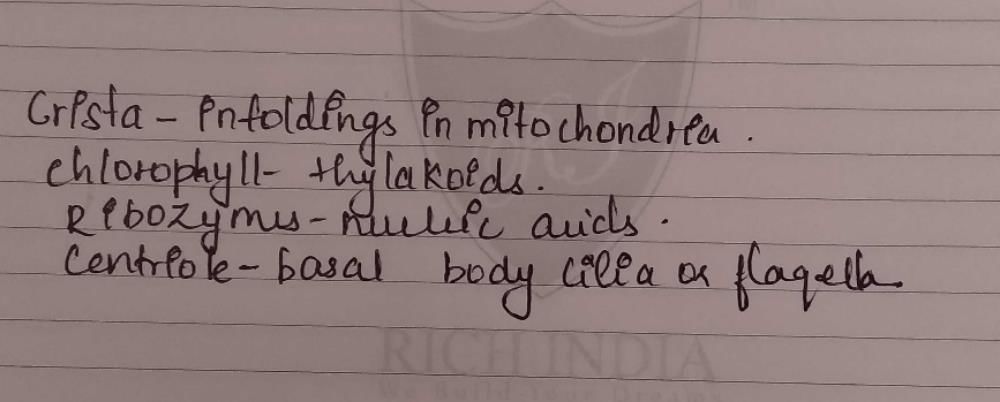 Crista - infoldings in mitochondria.
chlorophyll- thylakoids.
Ribozymes - nucleic acids.
Centriole - basal body cilia or flagella.
RICH INDIA
We Build Your Dreams